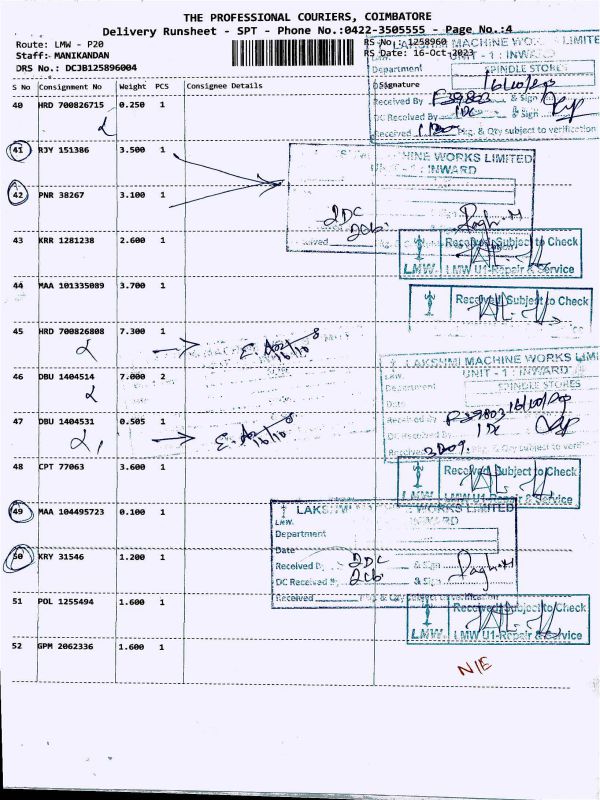 THE PROFESSIONAL COURIERS, COIMBATORE
Delivery Runsheet - SPT - Phone No.:0422-3505555 - Page No.:4
Route: LMW - P20
RS No.: 1258960
Staff: MANIKANDAN
RS Date: 16-Oct-2023
DRS No.: DCJB125896004
S No Consignment No Weight PCS Consignee Details Signature
LAKSHMI MACHINE WORKS LIMITED
UNIT - 1 : INWARD
Department SPINDLE STORES
16/10/
Received By & Sign
DC Received By 1DC & Sign
Received Pkg. & Qty subject to verification
40 HRD 700826715 0.250 1
41 RJY 151386 3.500 1
MACHINE WORKS LIMITED
UNIT - 1 : INWARD
42 PNR 38267 3.100 1
2DC
43 KRR 1281238 2.600 1
Received Subject to Check
LMW. LMW U1-Repair & Service
44 MAA 101335089 3.700 1
Received Subject to Check
45 HRD 700826808 7.300 1
16/10
46 DBU 1404514 7.000 2
LAKSHMI MACHINE WORKS LIMI
UNIT - 1 : INWARD
Department SPINDLE STORES
Date
Received By
DC Received By 1DC
Received Pkg. & Qty subject to verifi
47 DBU 1404531 0.505 1
16/10
48 CPT 77063 3.600 1
Received Subject to Check
LMW. LMW U1-Repair & Service
49 MAA 104495723 0.100 1
LAKSHMI MACHINE WORKS LIMITED
LMW. INWARD
Department
Date
50 KRY 31546 1.200 1
Received By 2DC & Sign
DC Received By & Sign
Received Pkg & Qty subject to verification
51 POL 1255494 1.600 1
Received Subject to Check
LMW. LMW U1-Repair & Service
52 GPM 2062336 1.600 1
N/E